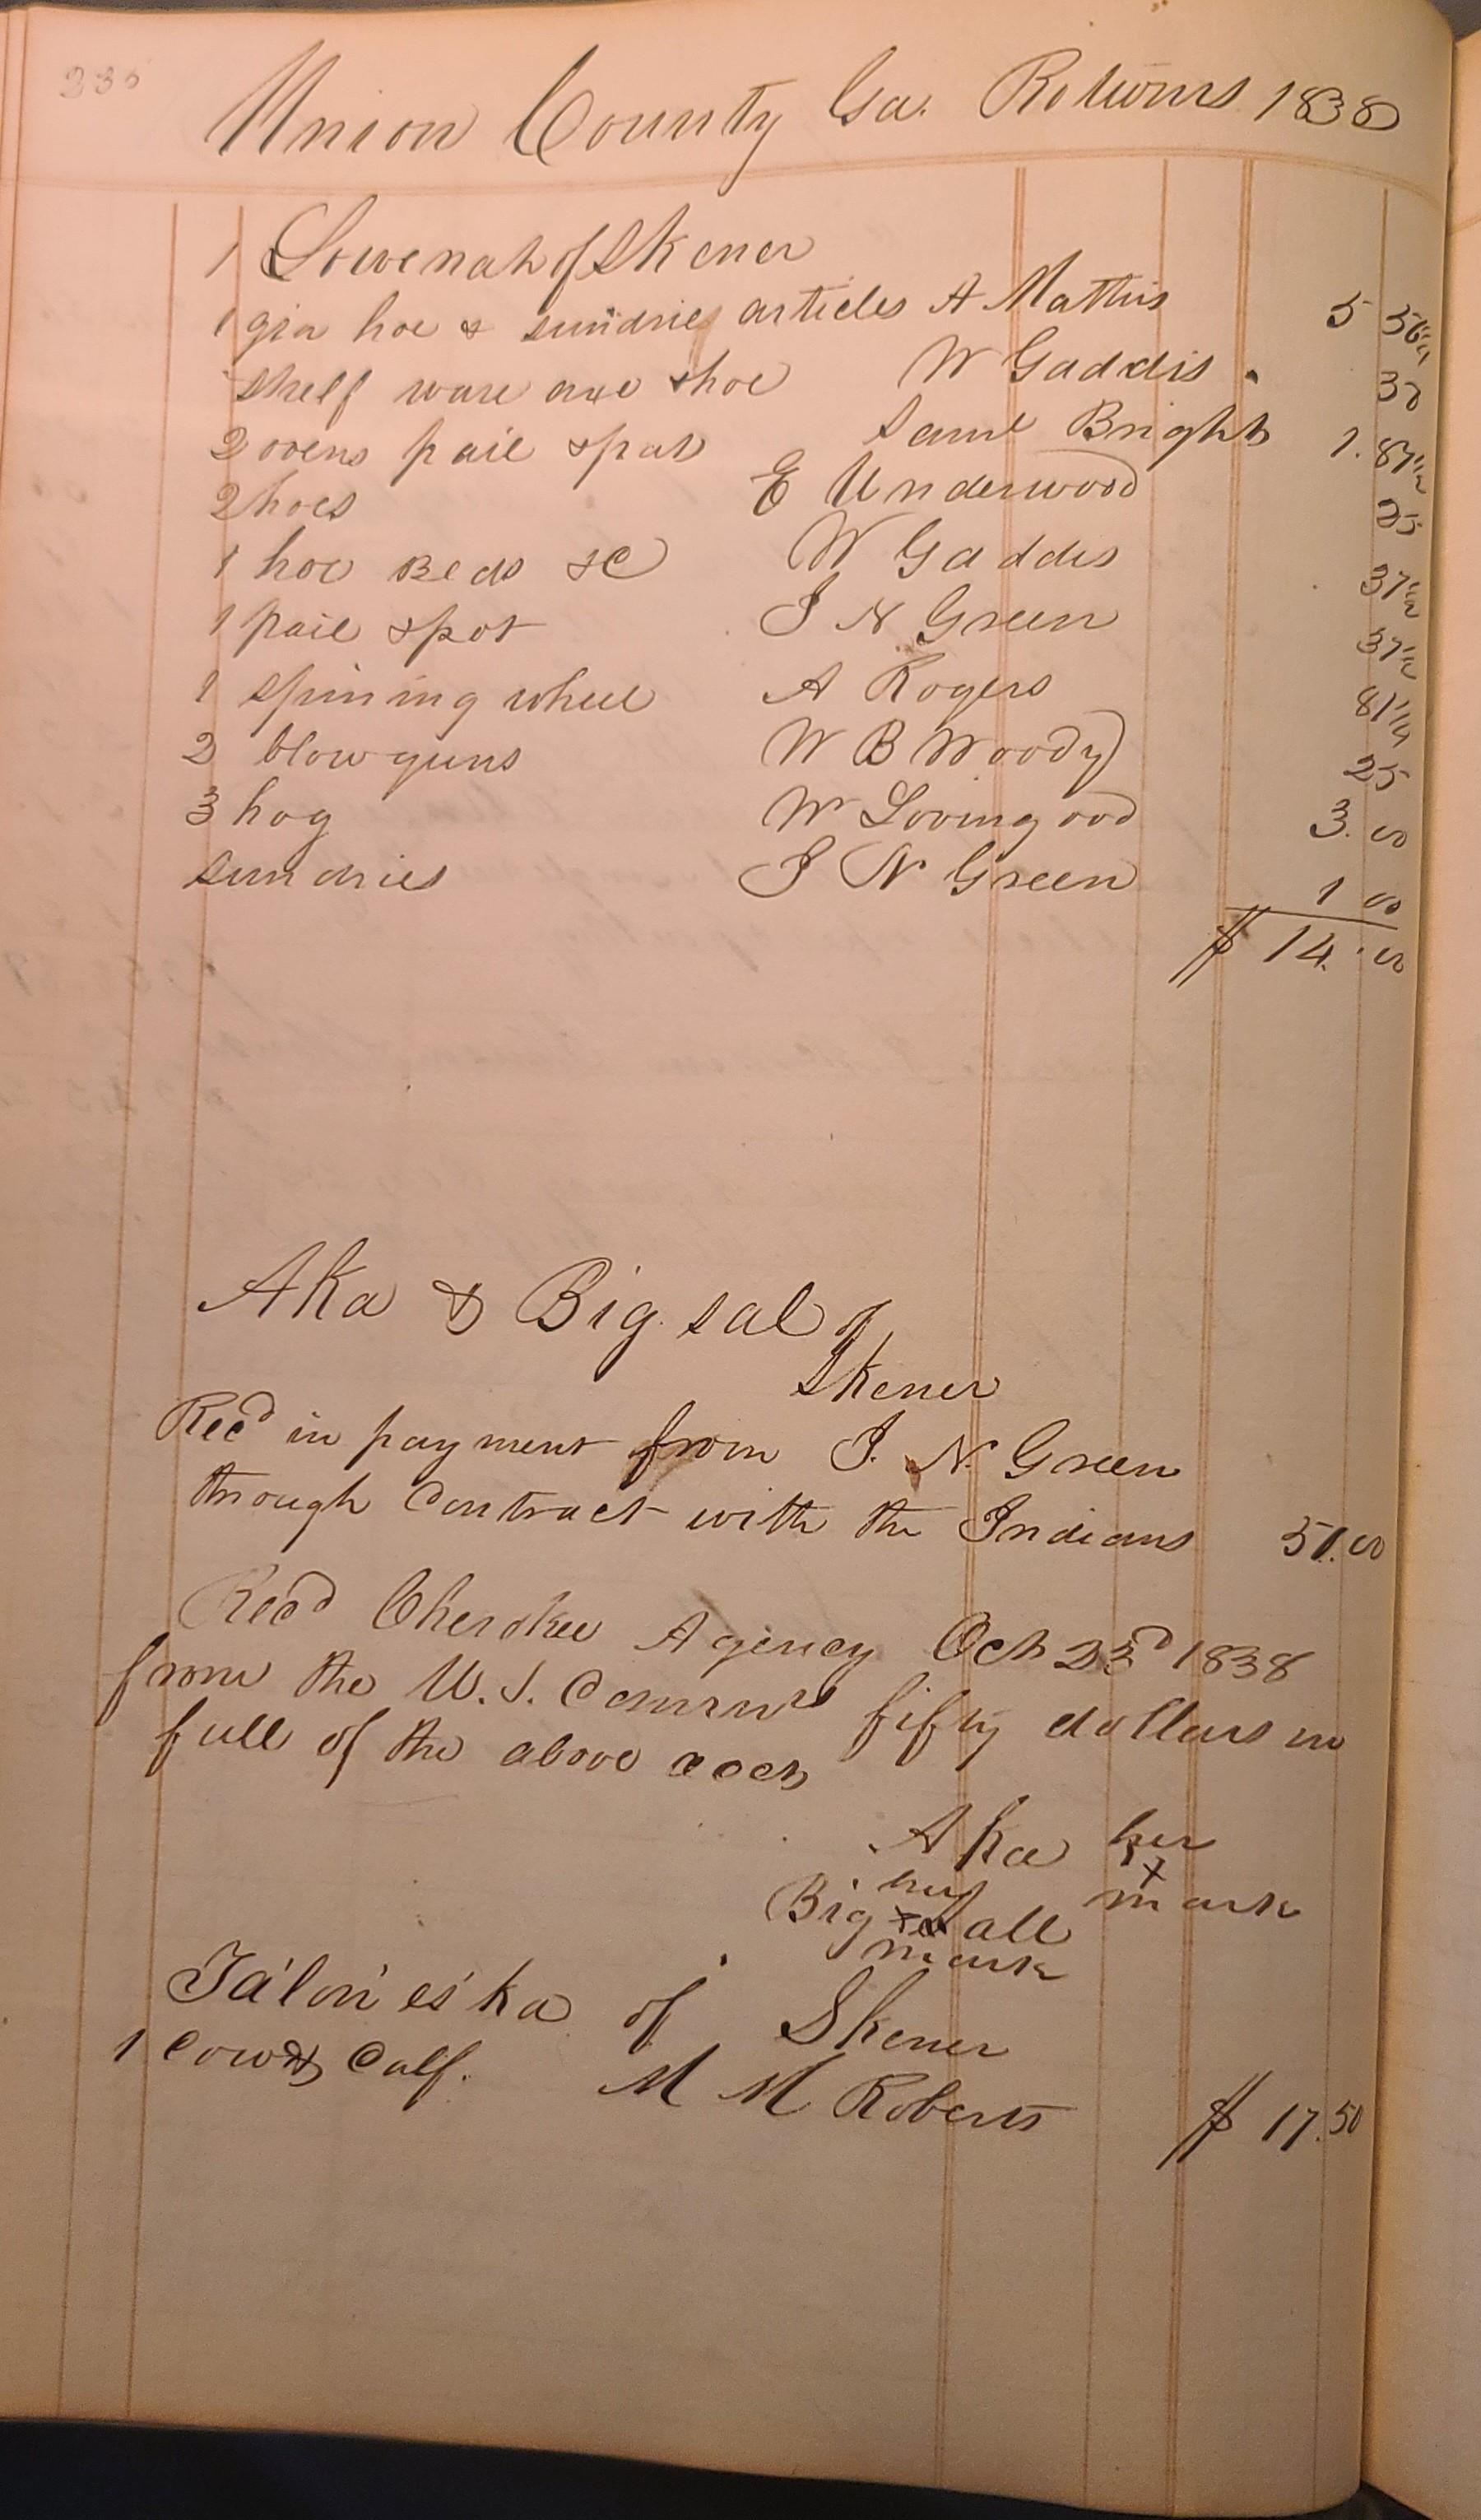 Union County Ga. Returns 1838
1 Sowenah of Skener
1 gin hoe & sundries articles A Mathis 5 56 1/4
shelf ware axe & hoe W Gaddis 30
2 ovens pail & pat Saml Bright 1.87 1/2
2 hoes E Underwood 25
1 hoe Beds &C W Gaddis 37 1/2
1 pail & pot J N Green 37 1/2
1 spining wheel A Rogers 81 1/4
2 blow guns W B Woody 25
3 hog W Lovingood 3.00
sundries J N Green 1 00
$ 14.00
Aka & Big sal of
Skener
Recd in payment from J. N. Green
through Contract with the Indians 51.00
Recd Cherokee Agency Oct 23d 1838
from the U.S. fifty dollars in
full of the above acct
Aka her
x
her mark
Big x Sall
mark
Ta'lon'es'ka of Skener
1 Cow & Calf. M M Roberts $ 17.50